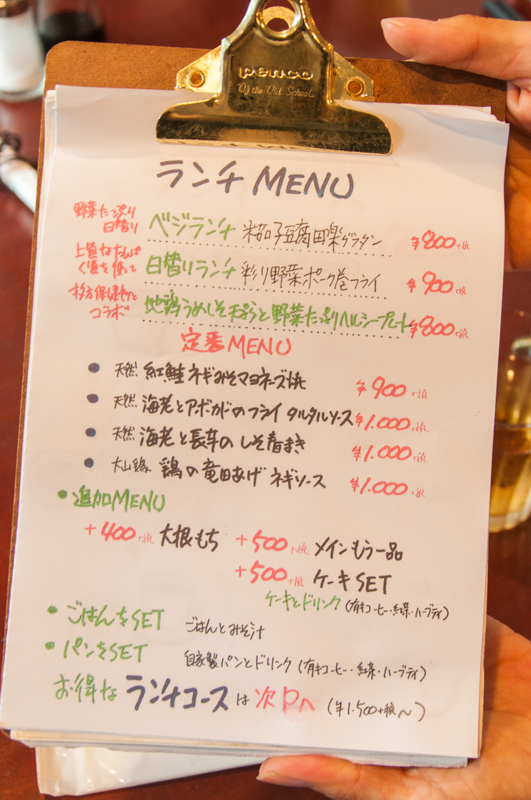 penco
Of the Old School.
ランチMENU
野菜たっぷり
日替り
ベジランチ 茄子豆腐田楽グラタン ¥800+税
上質なたんぱ
く質を使って
日替りランチ 彩り野菜ポーク巻フライ ¥900+税
コラボ
地鶏うめしそ天ぷらと野菜たっぷりヘルシープレート ¥800+税
定番MENU
• 天然 紅鮭ネギみそマヨネーズ焼 ¥900+税
• 天然 海老とアボカドのフライ タルタルソース ¥1.000+税
• 天然 海老と長芋のしそ春まき ¥1.000+税
• 大山鶏 鶏の竜田あげ ネギソース ¥1.000+税
• 追加MENU
+400+税 大根もち +500+税 メインもう一品
+500+税 ケーキSET
ケーキとドリンク (有キコーヒー・紅茶・ハーブティ)
• ごはんをSET ごはんとみそ汁
• パンをSET 自家製パンとドリンク (有キコーヒー・紅茶・ハーブティ)
お得な ランチコースは 次Pへ (¥1.500+税〜)